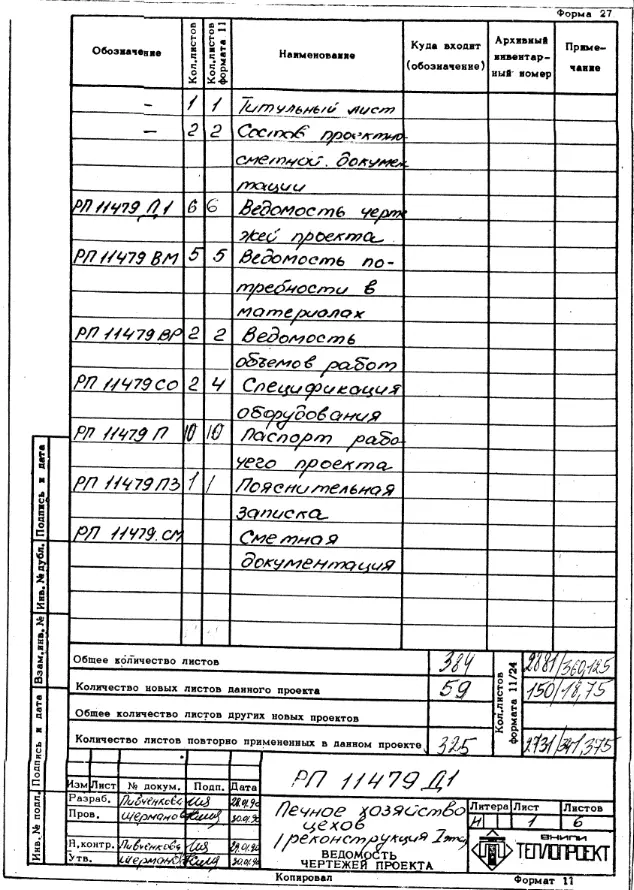 Форма 27
Обозначение Кол.листов Кол.листов формата 11 Наименование Куда входит (обозначение) Архивный инвентарный номер Примечание
– 1 1 Титульный лист
– 2 2 Состав проектно-
сметной докумен-
тации
РП 11479 Д1 6 6 Ведомость черте-
жей проекта
РП 11479 ВМ 5 5 Ведомость по-
требности в
материалах
РП 11479 ВР 2 2 Ведомость
объемов работ
РП 11479 СО 2 4 Спецификация
оборудования
РП 11479 П 10 10 Паспорт рабо-
чего проекта
РП 11479 ПЗ 1 1 Пояснительная
записка
РП 11479.СМ Сметная
документация
Общее количество листов 384
Количество новых листов данного проекта 59
Общее количество листов других новых проектов
Количество листов повторно примененных в данном проекте 325
Кол.листов формата 11/24
2881/360,125
150/18,75
2731/341,375
Инв.№ подл. Подпись и дата Взам.инв.№ Инв.№ дубл. Подпись и дата
Изм Лист № докум. Подп. Дата
Разраб. Ливченкова
Пров. Шерманов
Н.контр. Ливченкова
Утв. Шерманов
РП 11479 Д1
Печное хозяйство
цехов
/реконструкция I этап
ВЕДОМОСТЬ
ЧЕРТЕЖЕЙ ПРОЕКТА
Литера Лист Листов
И 1 6
ВНИПИ
ТЕПЛОПРОЕКТ
Копировал Формат 11